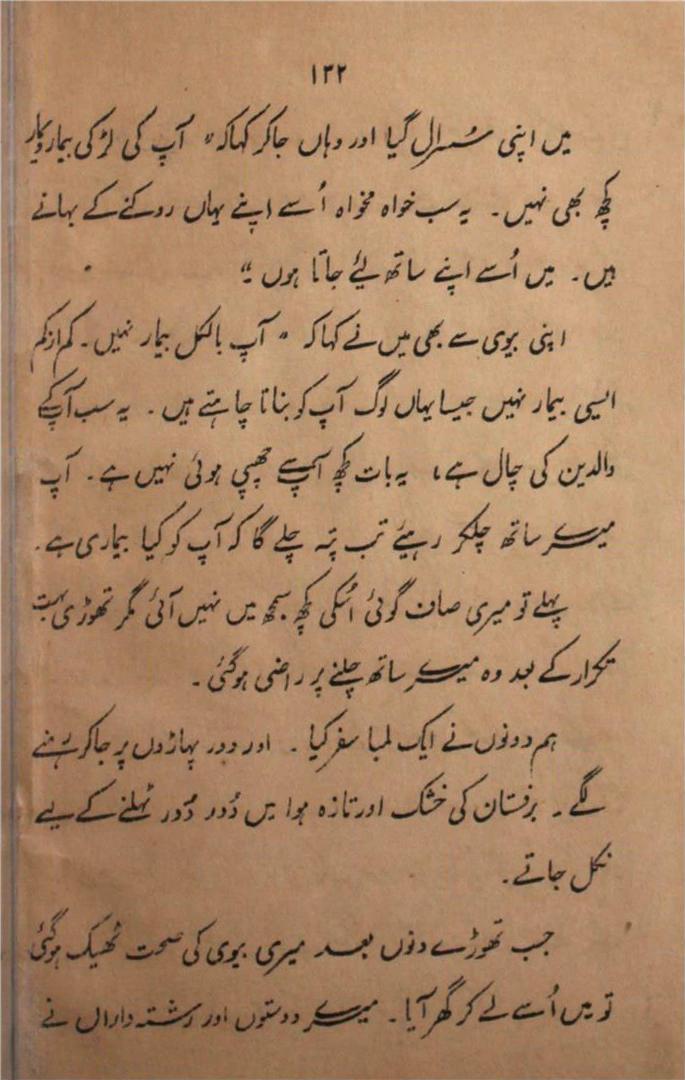 ۱۳۲
میں اپنی سُسرال گیا اور وہاں جاکر کہاکہ " آپ کی لڑکی بیمار ویمار
کچھ بھی نہیں۔ یہ سب خواہ مخواہ اُسے اپنے یہاں روکنے کے بہانے
ہیں۔ میں اُسے اپنے ساتھ لئے جاتا ہوں ۔"
اپنی بیوی سے بھی میں نے کہا کہ " آپ بالکل بیمار نہیں۔ کم ازکم
ایسی بیمار نہیں جیسا یہاں لوگ آپ کو بنانا چاہتے ہیں۔ یہ سب آپکے
والدین کی چال ہے، یہ بات کچھ آپسے چھپی ہوئی نہیں ہے۔ آپ
میرے ساتھ چلکر رہیئے تب پتہ چلے گا کہ آپ کو کیا بیماری ہے۔
پہلے تو میری صاف گوئی اُسکی کچھ سمجھ میں نہیں آئی مگر تھوڑی بہت
تکرار کے بعد وہ میرے ساتھ چلنے پر راضی ہوگئی۔
ہم دونوں نے ایک لمبا سفر کیا ۔ اور دور پہاڑوں پر جاکر رہنے
لگے۔ برفستان کی خشک اور تازہ ہوا میں دُور دُور ٹہلنے کے لیے
نکل جاتے۔
جب تھوڑے دنوں بعد میری بیوی کی صحت ٹھیک ہوگئی
تو میں اُسے لے کر گھر آیا۔ میرے دوستوں اور رشتہ داراں نے